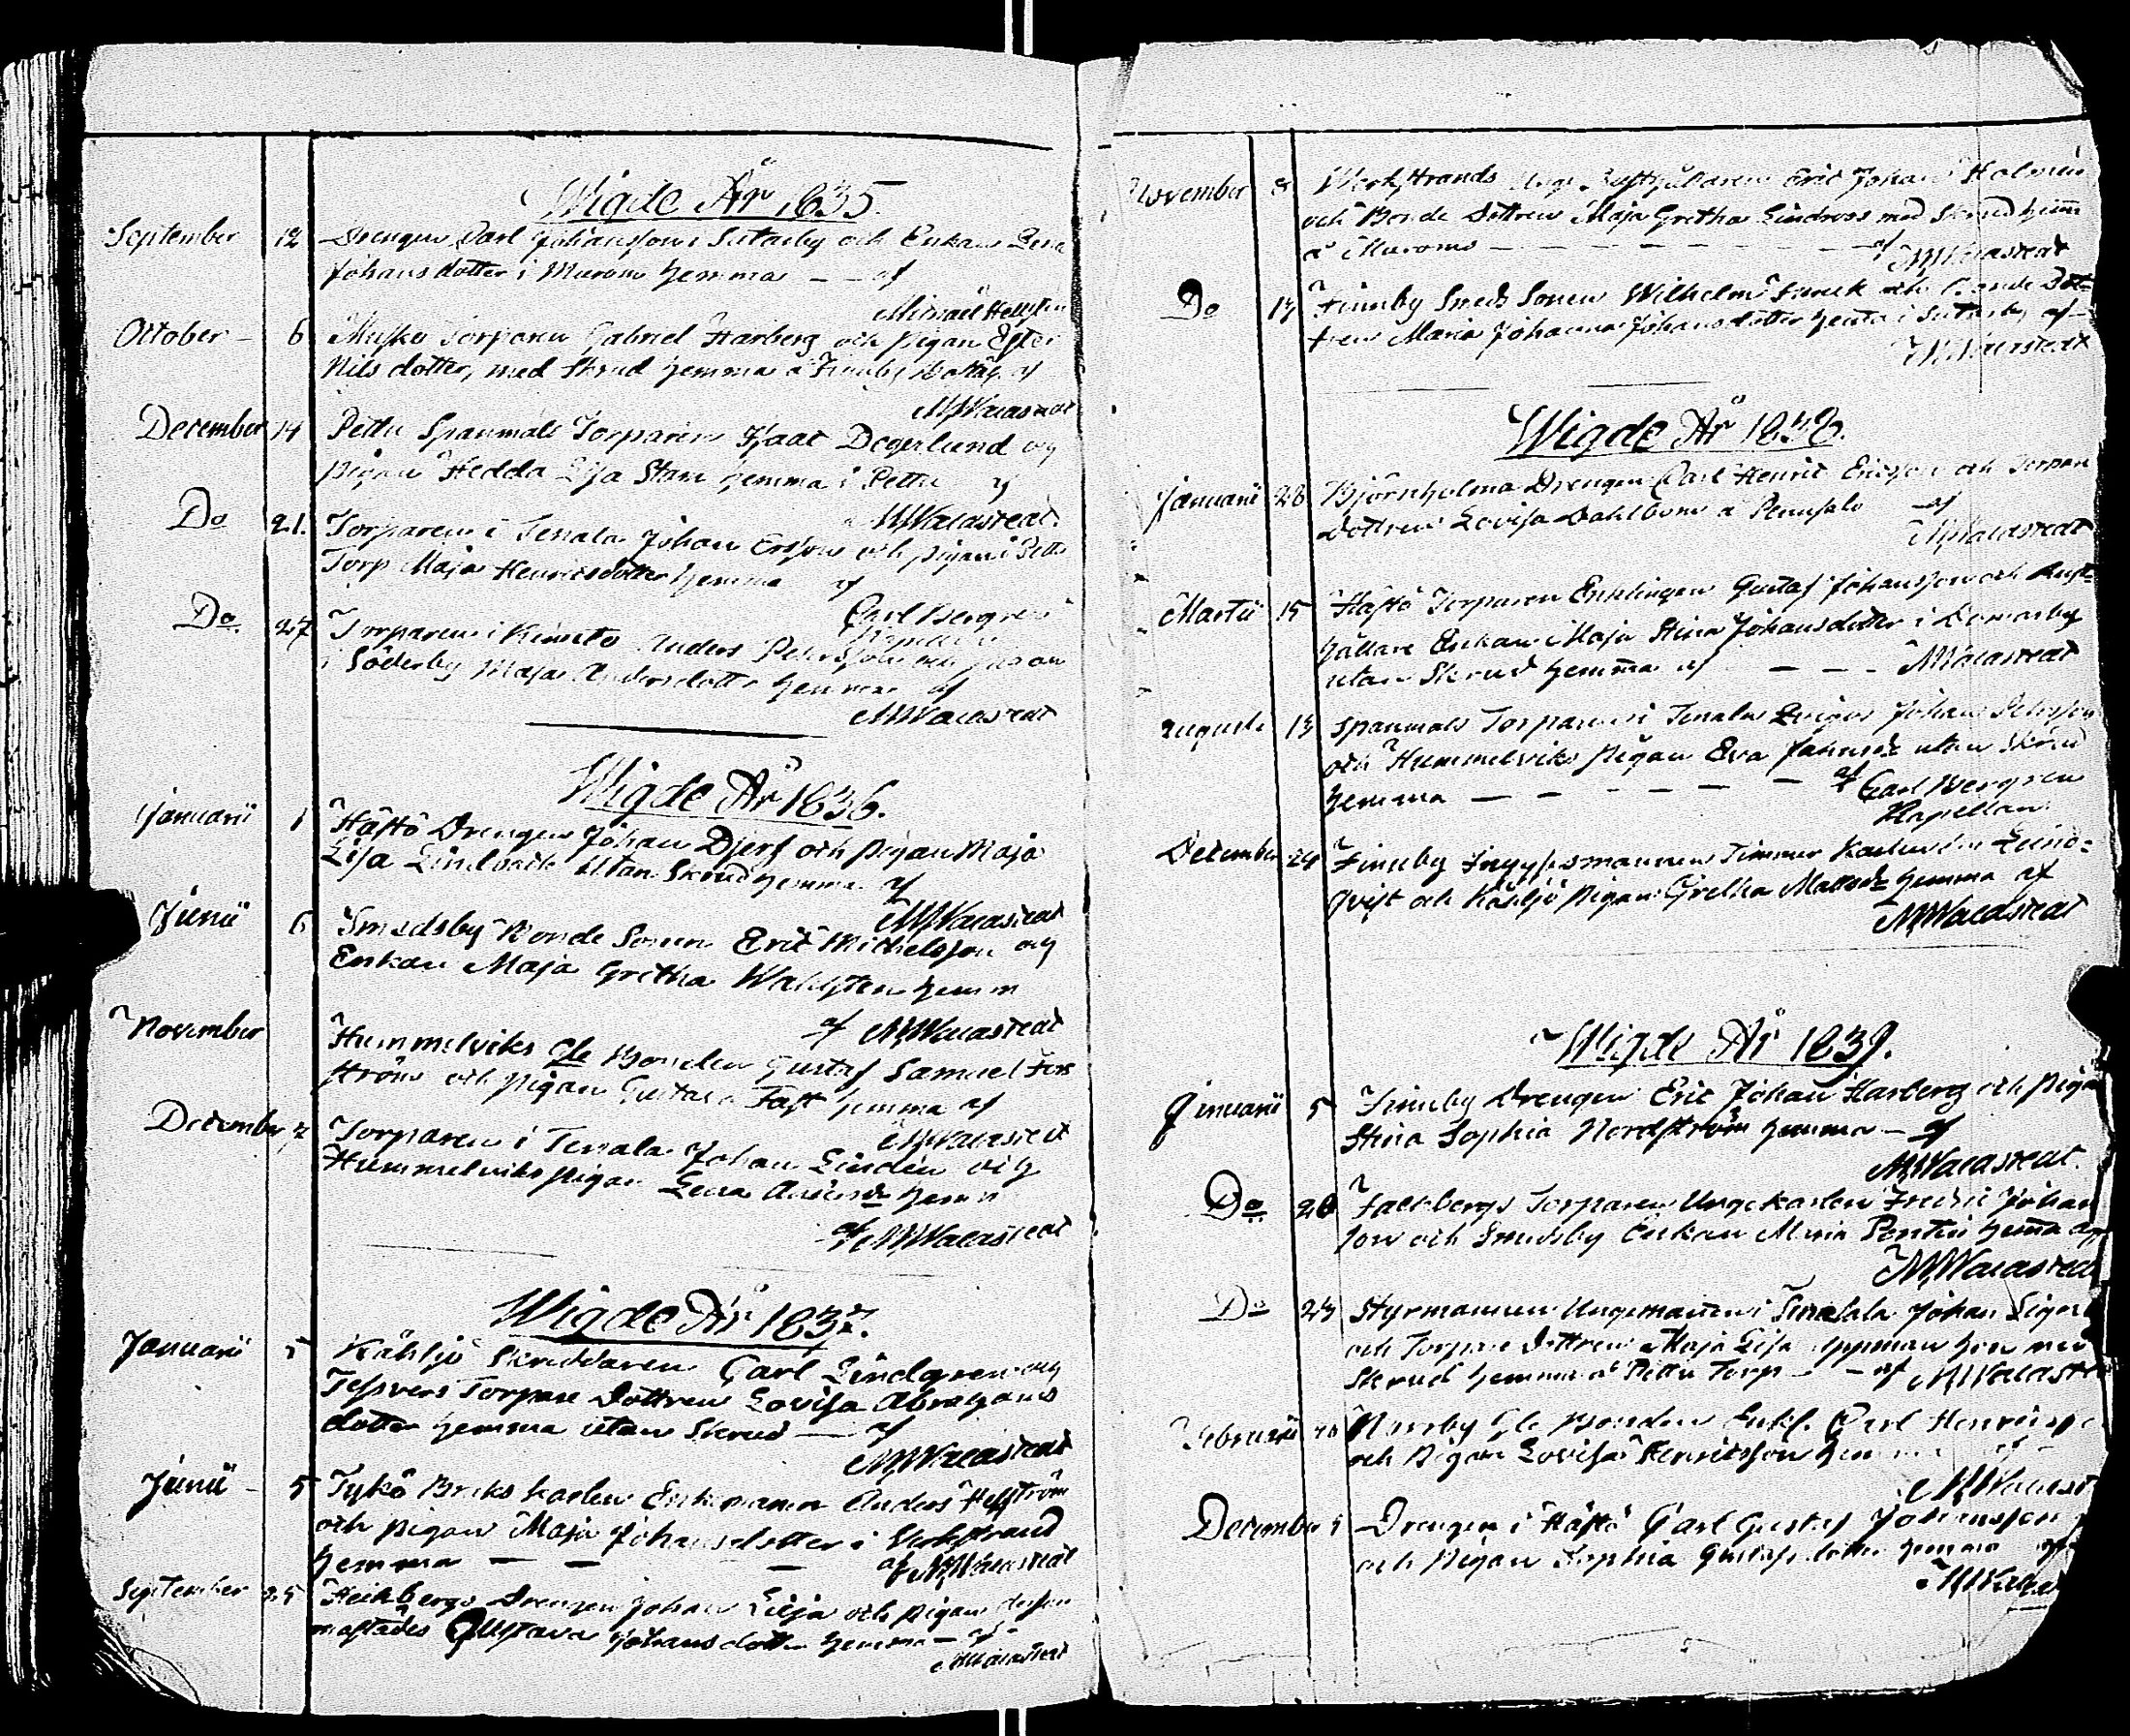 Wigde År 1835.
September 12 Drengen Carl Johansson i Sutarby och Enkan Lena
Johansdotter i Murom hemma — — af
Michael Hellsten
October — 6 Torparen Gabriel Harberg och Pigan Ester
Nils dotter, med Skrud hemma å Finnby af
MWalastedt
December 14 Pettu Spanmåls Torparen Isaac Degerlund och
Pigan Hedda Lisa Stam hemma i Pettu af
MWalastedt.
Do 21. Torparen i Tenala Johan Ersson och pigan i Pettu
Torp Maja Henricsdotter hemma af
Carl Bergren
Do 27 Torparen i Kimito Anders Petersson och pigan
i Söderby Maja Andersdotter hemma af
MWalastedt
Wigde År 1836.
Januarii 1 Håftö Drengen Johan Djerf och pigan Maja
Lisa Lindbäck Utan Skrud hemma af
MWalastedt
Junii 6 Smedsby Bonde Sonen Eric Michelsson och
Enkan Maja Gretha Wahlsten hemm
af MWalastedt
November Hummelviks Gle Bonden Gustaf Samuel Fors
ström och pigan Gustava Fast hemma af
MWalastedt
December 7 Torparen i Tenala Johan Lindén och
Hummelviks pigan Lena Andersdr hemm
af MWalastedt
Wigde År 1837.
Januarii Kåhljo Skräddaren Carl Lindgren och
Jessvers Torpare Dottren Lovisa Abrahams
dotter hemma utan Skrud — af
MWalastedt
Junii — 5 Tykö Bruks karlen Enkemannen Anders Hellström
och pigan Maja Johansdotter i Verkstrand
hemma — — — af MWalastedt
September 25 Heikbergs Drengen Johan Lilja och pigan
Gustava Johansdotter hemma — af
MWalastedt
November 8 Werkstrands Unge Johan Holmén
och Bonde Dottren Maja Gretha Lindroos med Skrud hemma
å Muroms — — — — — — — af
MWalastedt
Do 17 Finnby Smeds Sonen Wilhelm och Bonde Dot=
tren Maria Johanna Johansdotter hemma i Sutarby af —
MWalastedt
Wigde År 1838.
Januarii 28 Björnholma Drengen Carl Henric Ericsson och Torpare
Dottren Lovisa Dahlbom å Pennsalo af
MWalastedt
Martii 15 Håftö Torparen Enklingen Gustaf Johansson och Rust=
hållare Enkan Maja Stina Johansdotter i Domarby
utan Skrud hemma af — — — MWalastedt
Augusti 13 Spanmåls Torparen i Tenala Johan Petersson
och Hummelviks Pigan Eva Johansdr utan Skrud
hemma — — — — — af Carl Bergren
Kapellan
December 29 Finnby Inhyssmannen Timmer Karlen Lind=
qvist och Kåhljo Pigan Gretha Mattsdr hemma af
MWalastedt
Wigde År 1839.
Januarii 5 Finnby Drengen Eric Johan Harberg och Pigan
Stina Sophia Nordström hemma — af
MWalastedt.
Do 20 Falkbergs Torparen Ungekarlen Fredric Johan
son och Smedsby Enkan Maria Pontin hemma af
MWalastedt
Do 27 Styrmannen Ungemannen i Tenala Johan
och Torpare Dottren Maja Lisa med
Skrud hemma å Pettu Torp — — af MWalastedt
Februarii Norrby Gle Bonden Enkl. Carl
och Pigan Lovisa Henricsson hemma af
MWalastedt
December Drengen i Håftö Carl Gustaf Johansson
och Pigan Sophia Gustafsdotter hemma af
MWalastedt